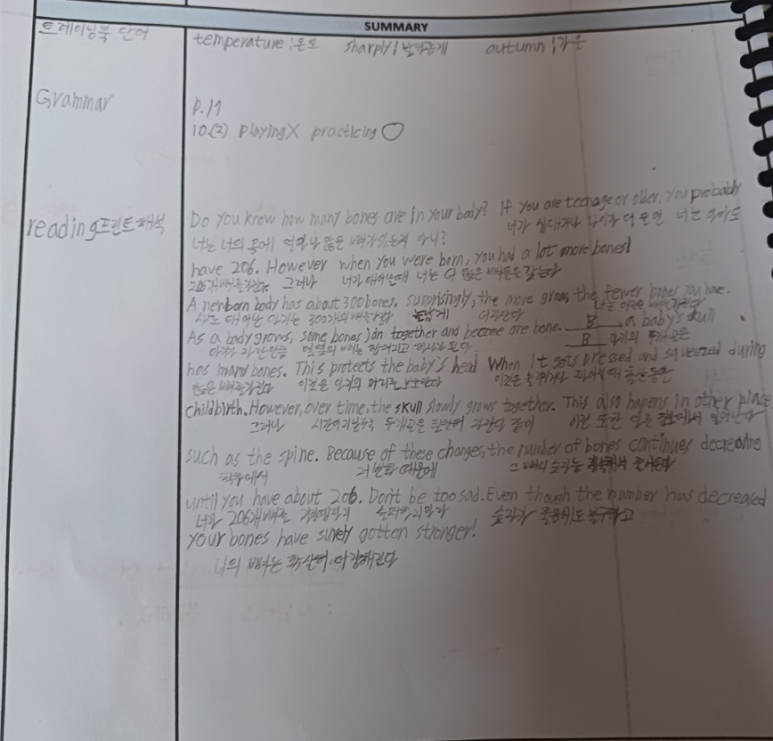 SUMMARY
트레이닝북 단어 temperature : 온도 sharply : 날카롭게 autumn : 가을
Grammar P.17
10.(2) playing X practicing ○
reading 프린트 해석 Do you know how many bones are in your body? If you are teenage or older, you probably
너는 너의 몸에 얼마나 많은 뼈가 있는지 아니? 너가 십대거나 나이가 더 많으면 너는 아마도
have 206. However when you were born, you had a lot more bones!
206개 뼈를 그러나 너가 태어났을때 너는 더 많은 뼈들을
A newborn body has about 300 bones. surprisingly, the more grows the fewer bones you have.
태어난 아기는 300개의 뼈를 놀랍게
As a body grows, some bones join together and become one bone. B , a baby's skull
B 아기의 두개골은
has many bones. This protects the baby's head When it gets pressed and squeezed during
많은 뼈를 가진다 이것은 아기의 머리를 보호한다 이것은
childbirth. However, over time, the skull slowly grows together. This also hapens in other place
그러나 시간이 지날수록 두개골은 천천히 같이 이런 또한 다른 장소에서 일어난다
such as the spine. Because of these changes, the number of bones continues decreasing
척추에서 변화 때문에 그 뼈의 숫자는 계속해서
until you have about 206. Don't be too sad. Even though the number has decreased
너가 206개 뼈를 슬퍼하지마라 숫자가
your bones have surely gotten stronger!
너의 뼈는 확실히 더 강해진다